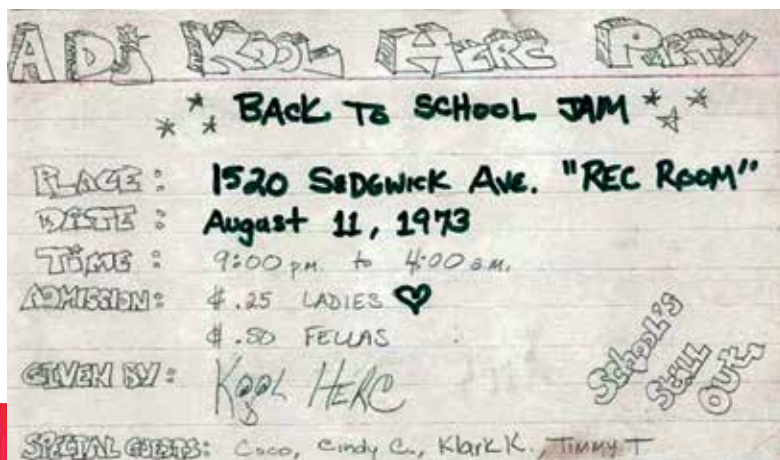 A DJ KOOL HERC PARTY
BACK TO SCHOOL JAM
PLACE: 1520 SEDGWICK AVE. "REC ROOM"
DATE: August 11, 1973
TIME: 9:00 p.m. to 4:00 a.m.
ADMISSION: $.25 LADIES
$.50 FELLAS
GIVEN BY: KOOL HERC
SPECIAL GUESTS: Coco, Cindy C., Klark K., Timmy T.
School's
Still
Out.